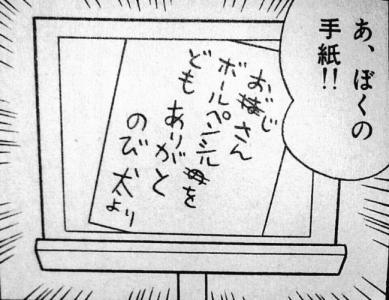 あ、ぼくの
手紙!!
おじさん
ボールペンシルを
ども ありがと
のび太より